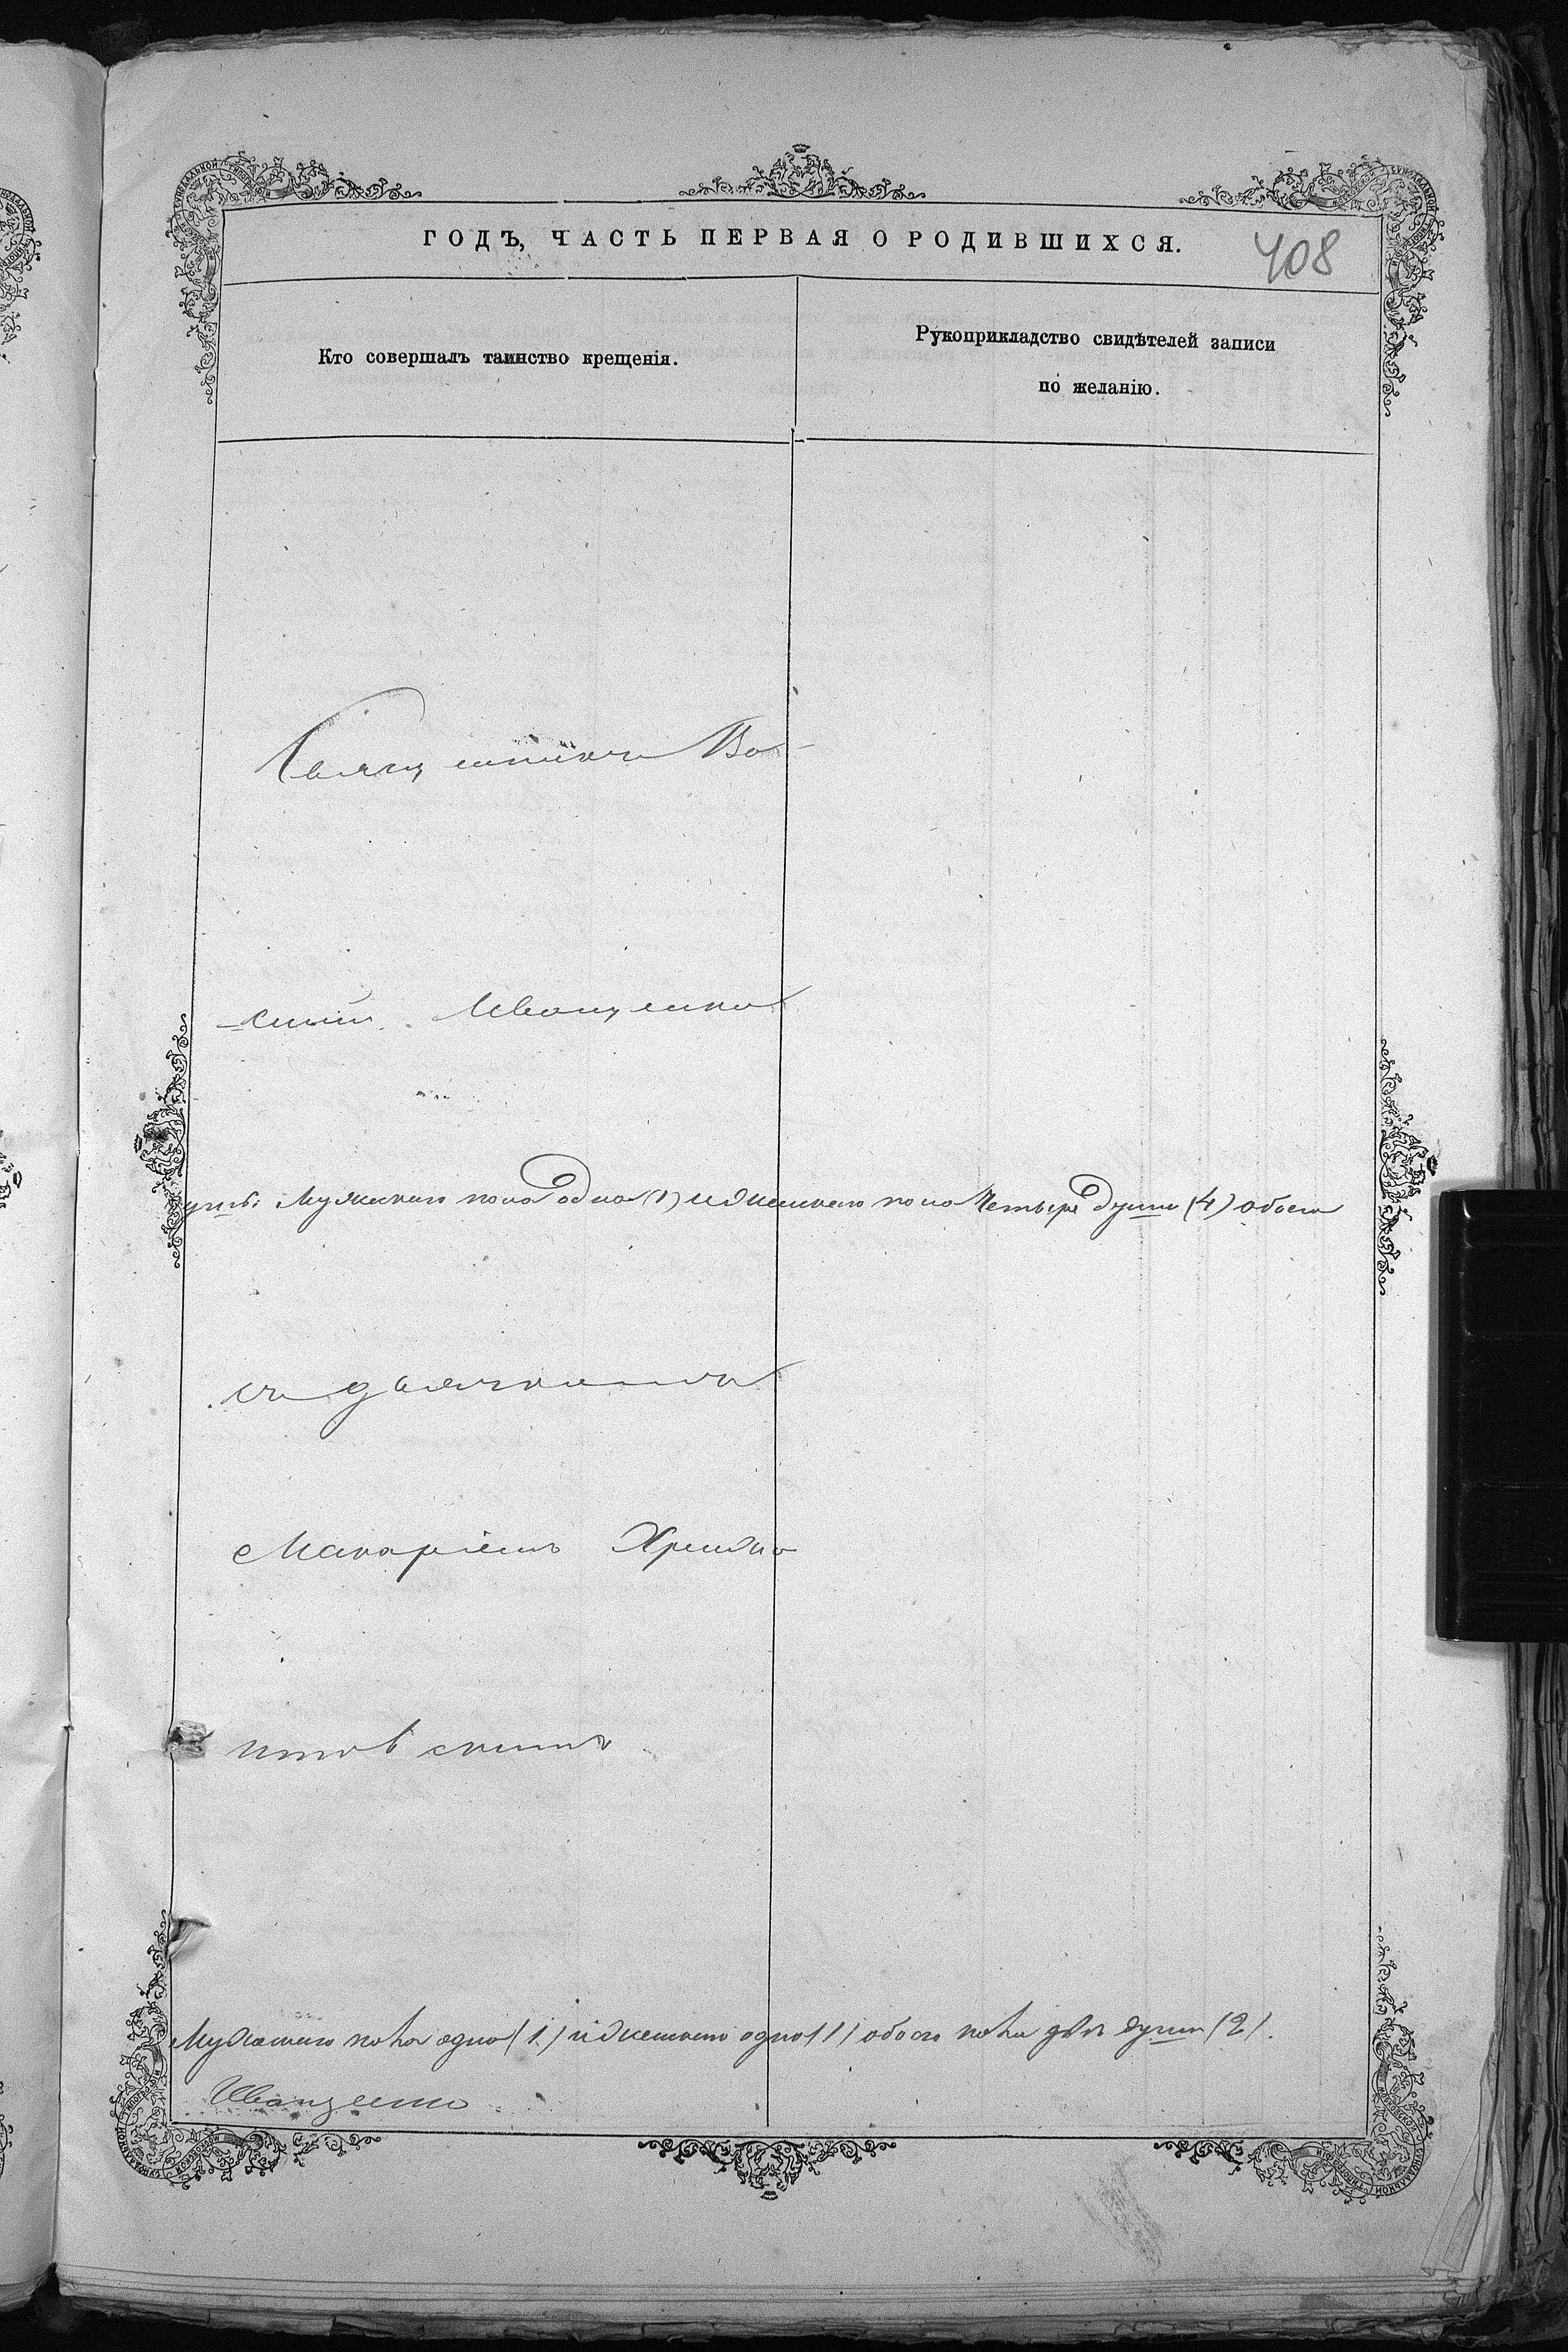 ГОДЪ, ЧАСТЬ ПЕРВАЯ О РОДИВШИХСЯ.
408
Кто совершалъ таинство крещенія.
Рукоприкладство свидѣтелей записи
по желанію.
Священникъ Ва-
-силій Иващенко
Мужескаго пола одна (1) и женскаго пола Четыре души (4) обоего
съ дьячкомъ
Макаріемъ
Мужескаго пола одно (1) и женскаго одно (1) обоего пола двѣ души (2).
Иващенко